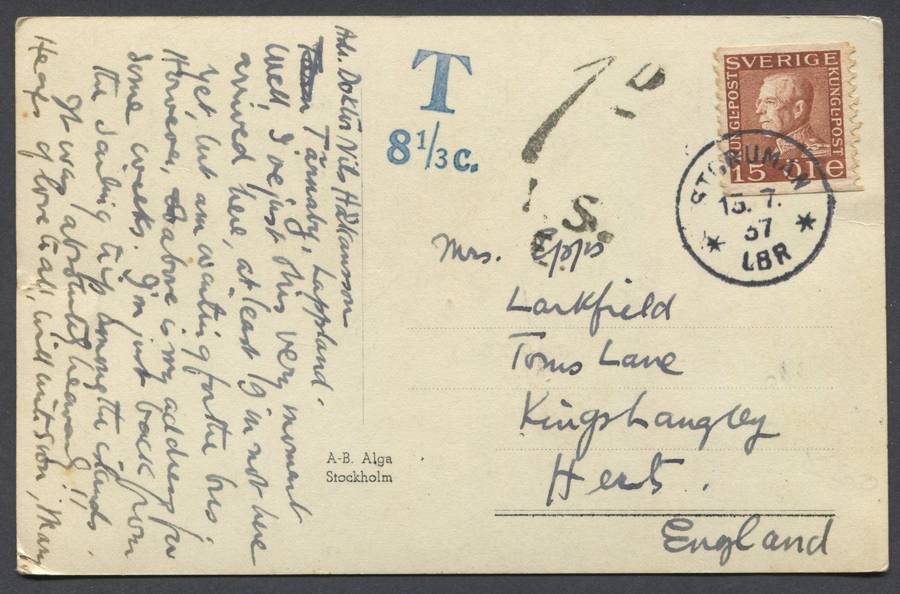 Adr. Doktor Nils Håkansson
Tärnaby, Lappland.
Well I've just this very moment
arrived here, at least I'm not here
yet, but am waiting for the bus.
However, above is my address for
some weeks. I'm just back from
the sailing trip among the islands.
It was absolutely heavenly!!
Heaps of love to all, will write soon, Mary
T
8 1/3 c.
1 D
A-B. Alga
Stockholm
SVERIGE
KUNGL-POST
KUNGL-POST
15 ÖRE
STORUMAN
15. 7.
37
LBR
Mrs. Epps
Larkfield
Toms Lane
Kings Langley
Herts.
England